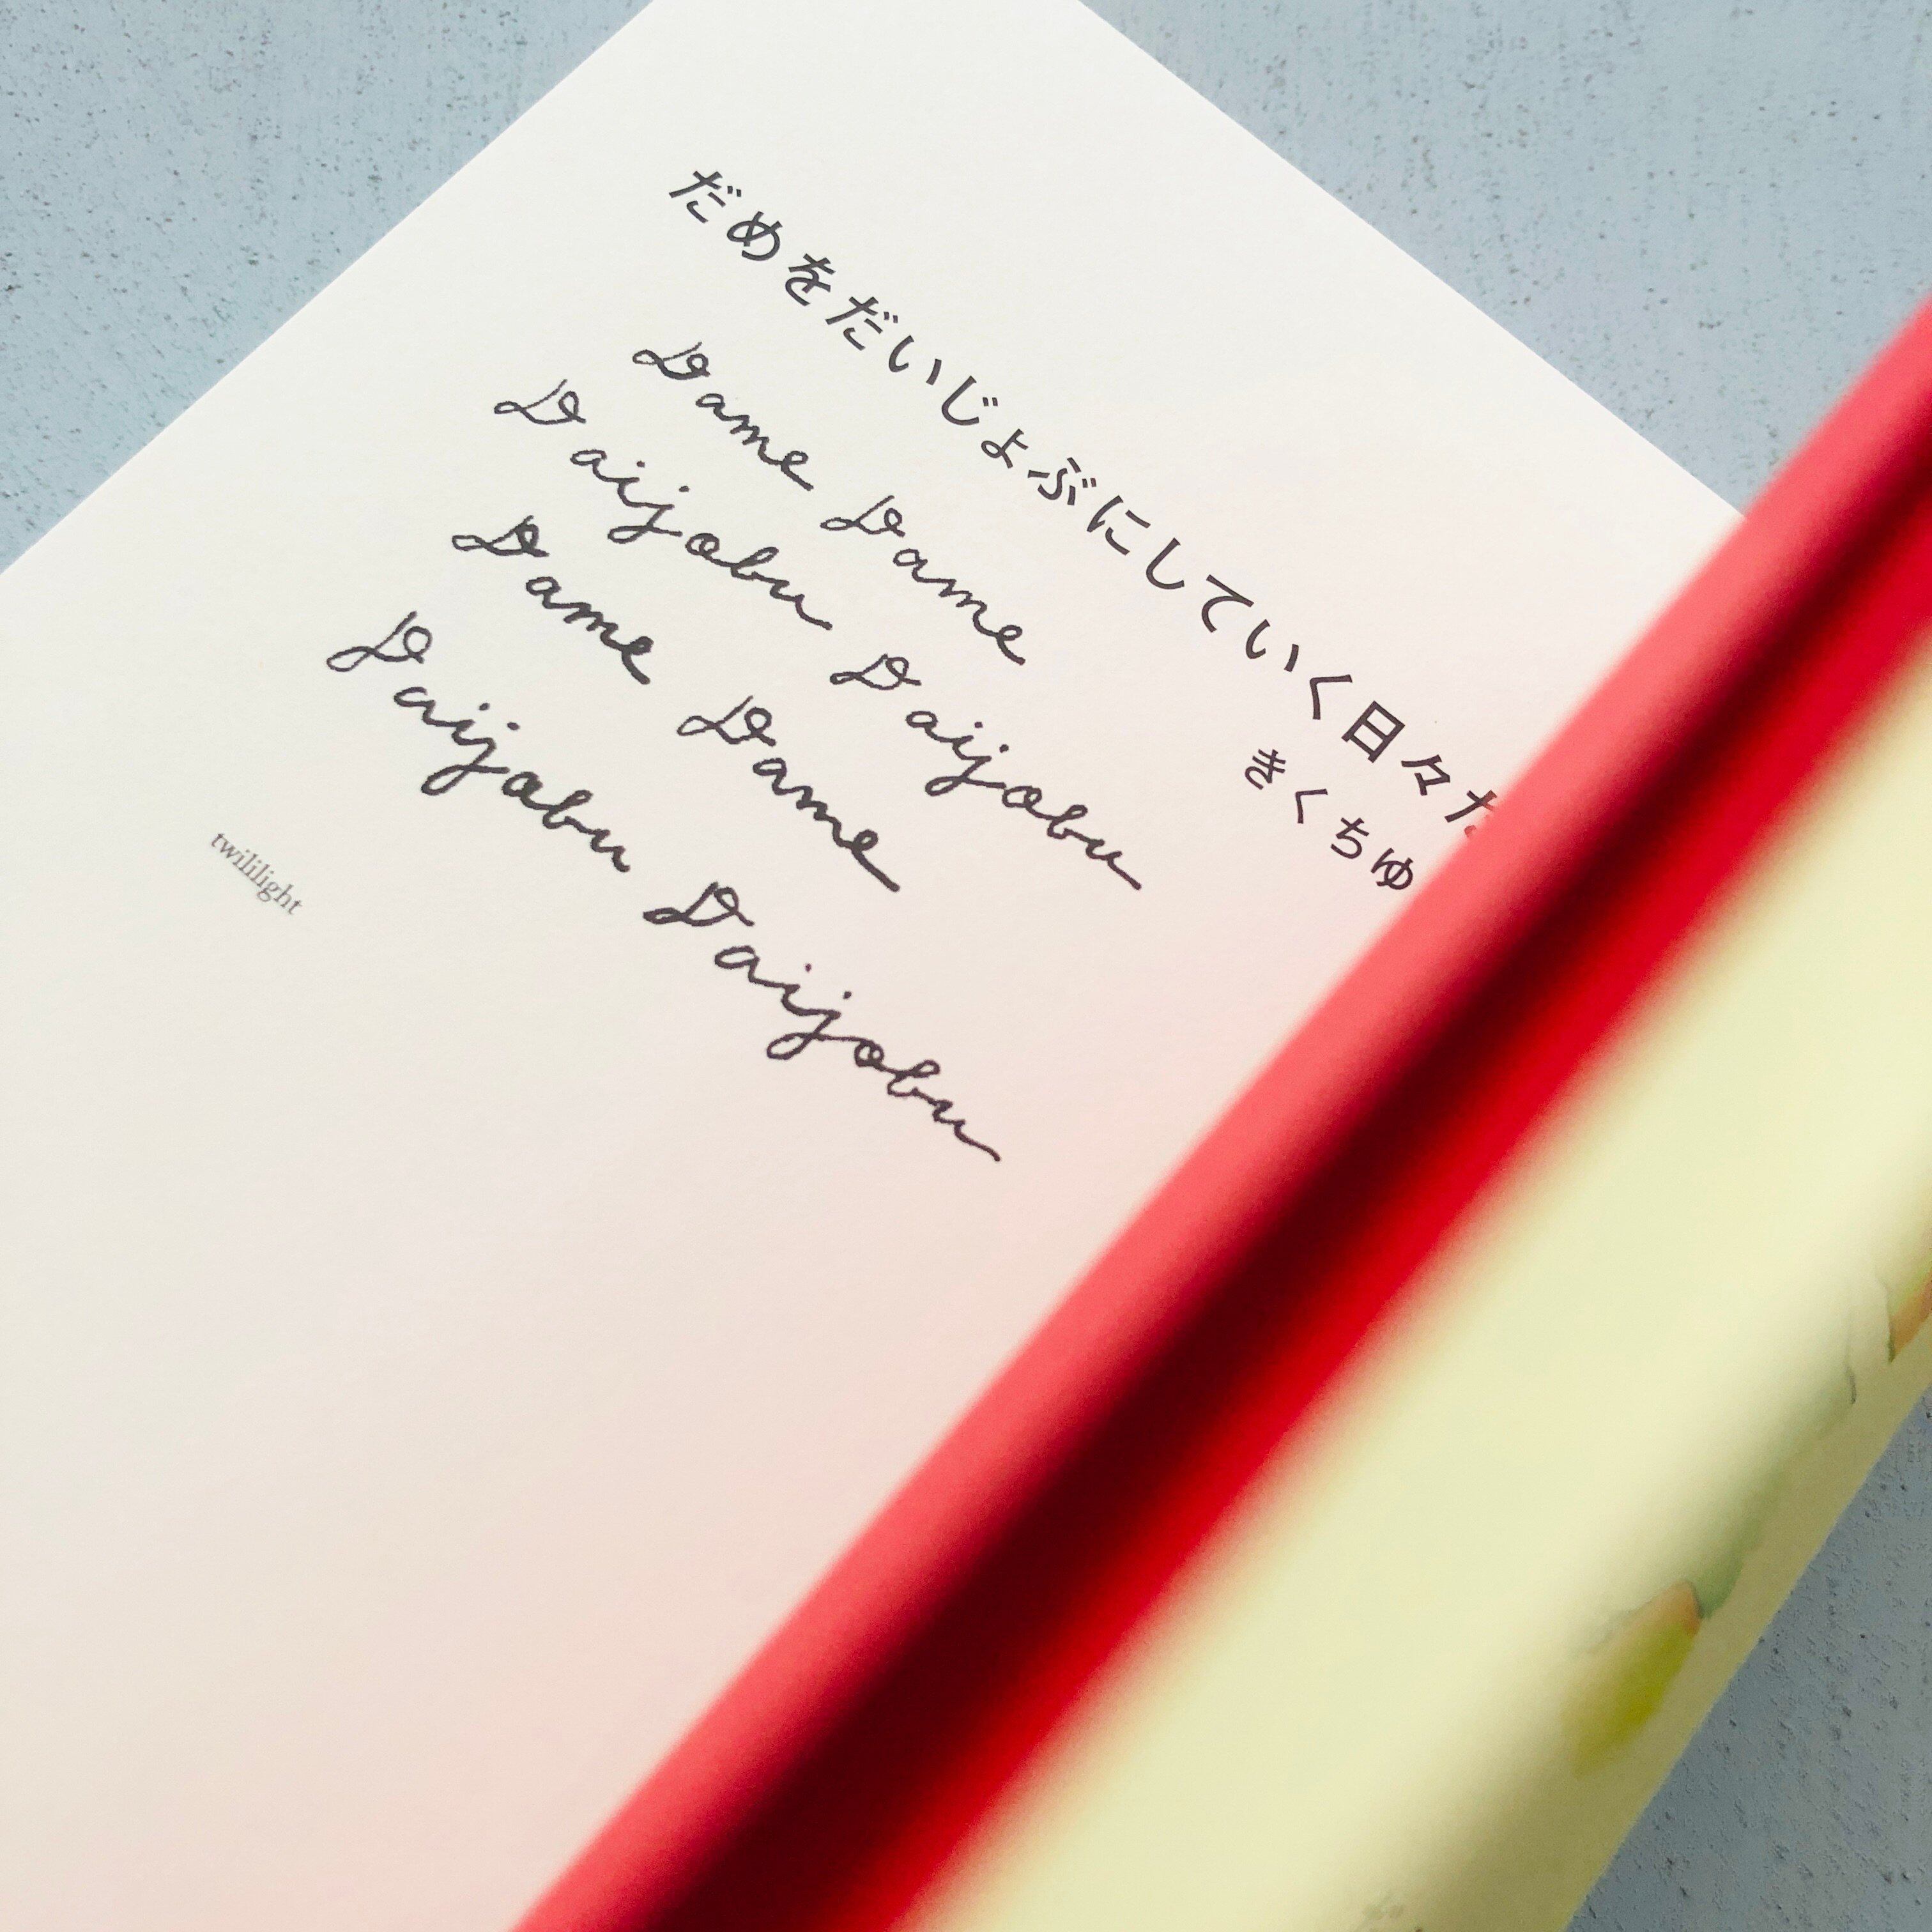 だめをだいじょぶにしていく日々だ
きくちゆ
Dame Dame
Daijobu Daijobu
Dame Dame
Daijobu Daijobu
twililight